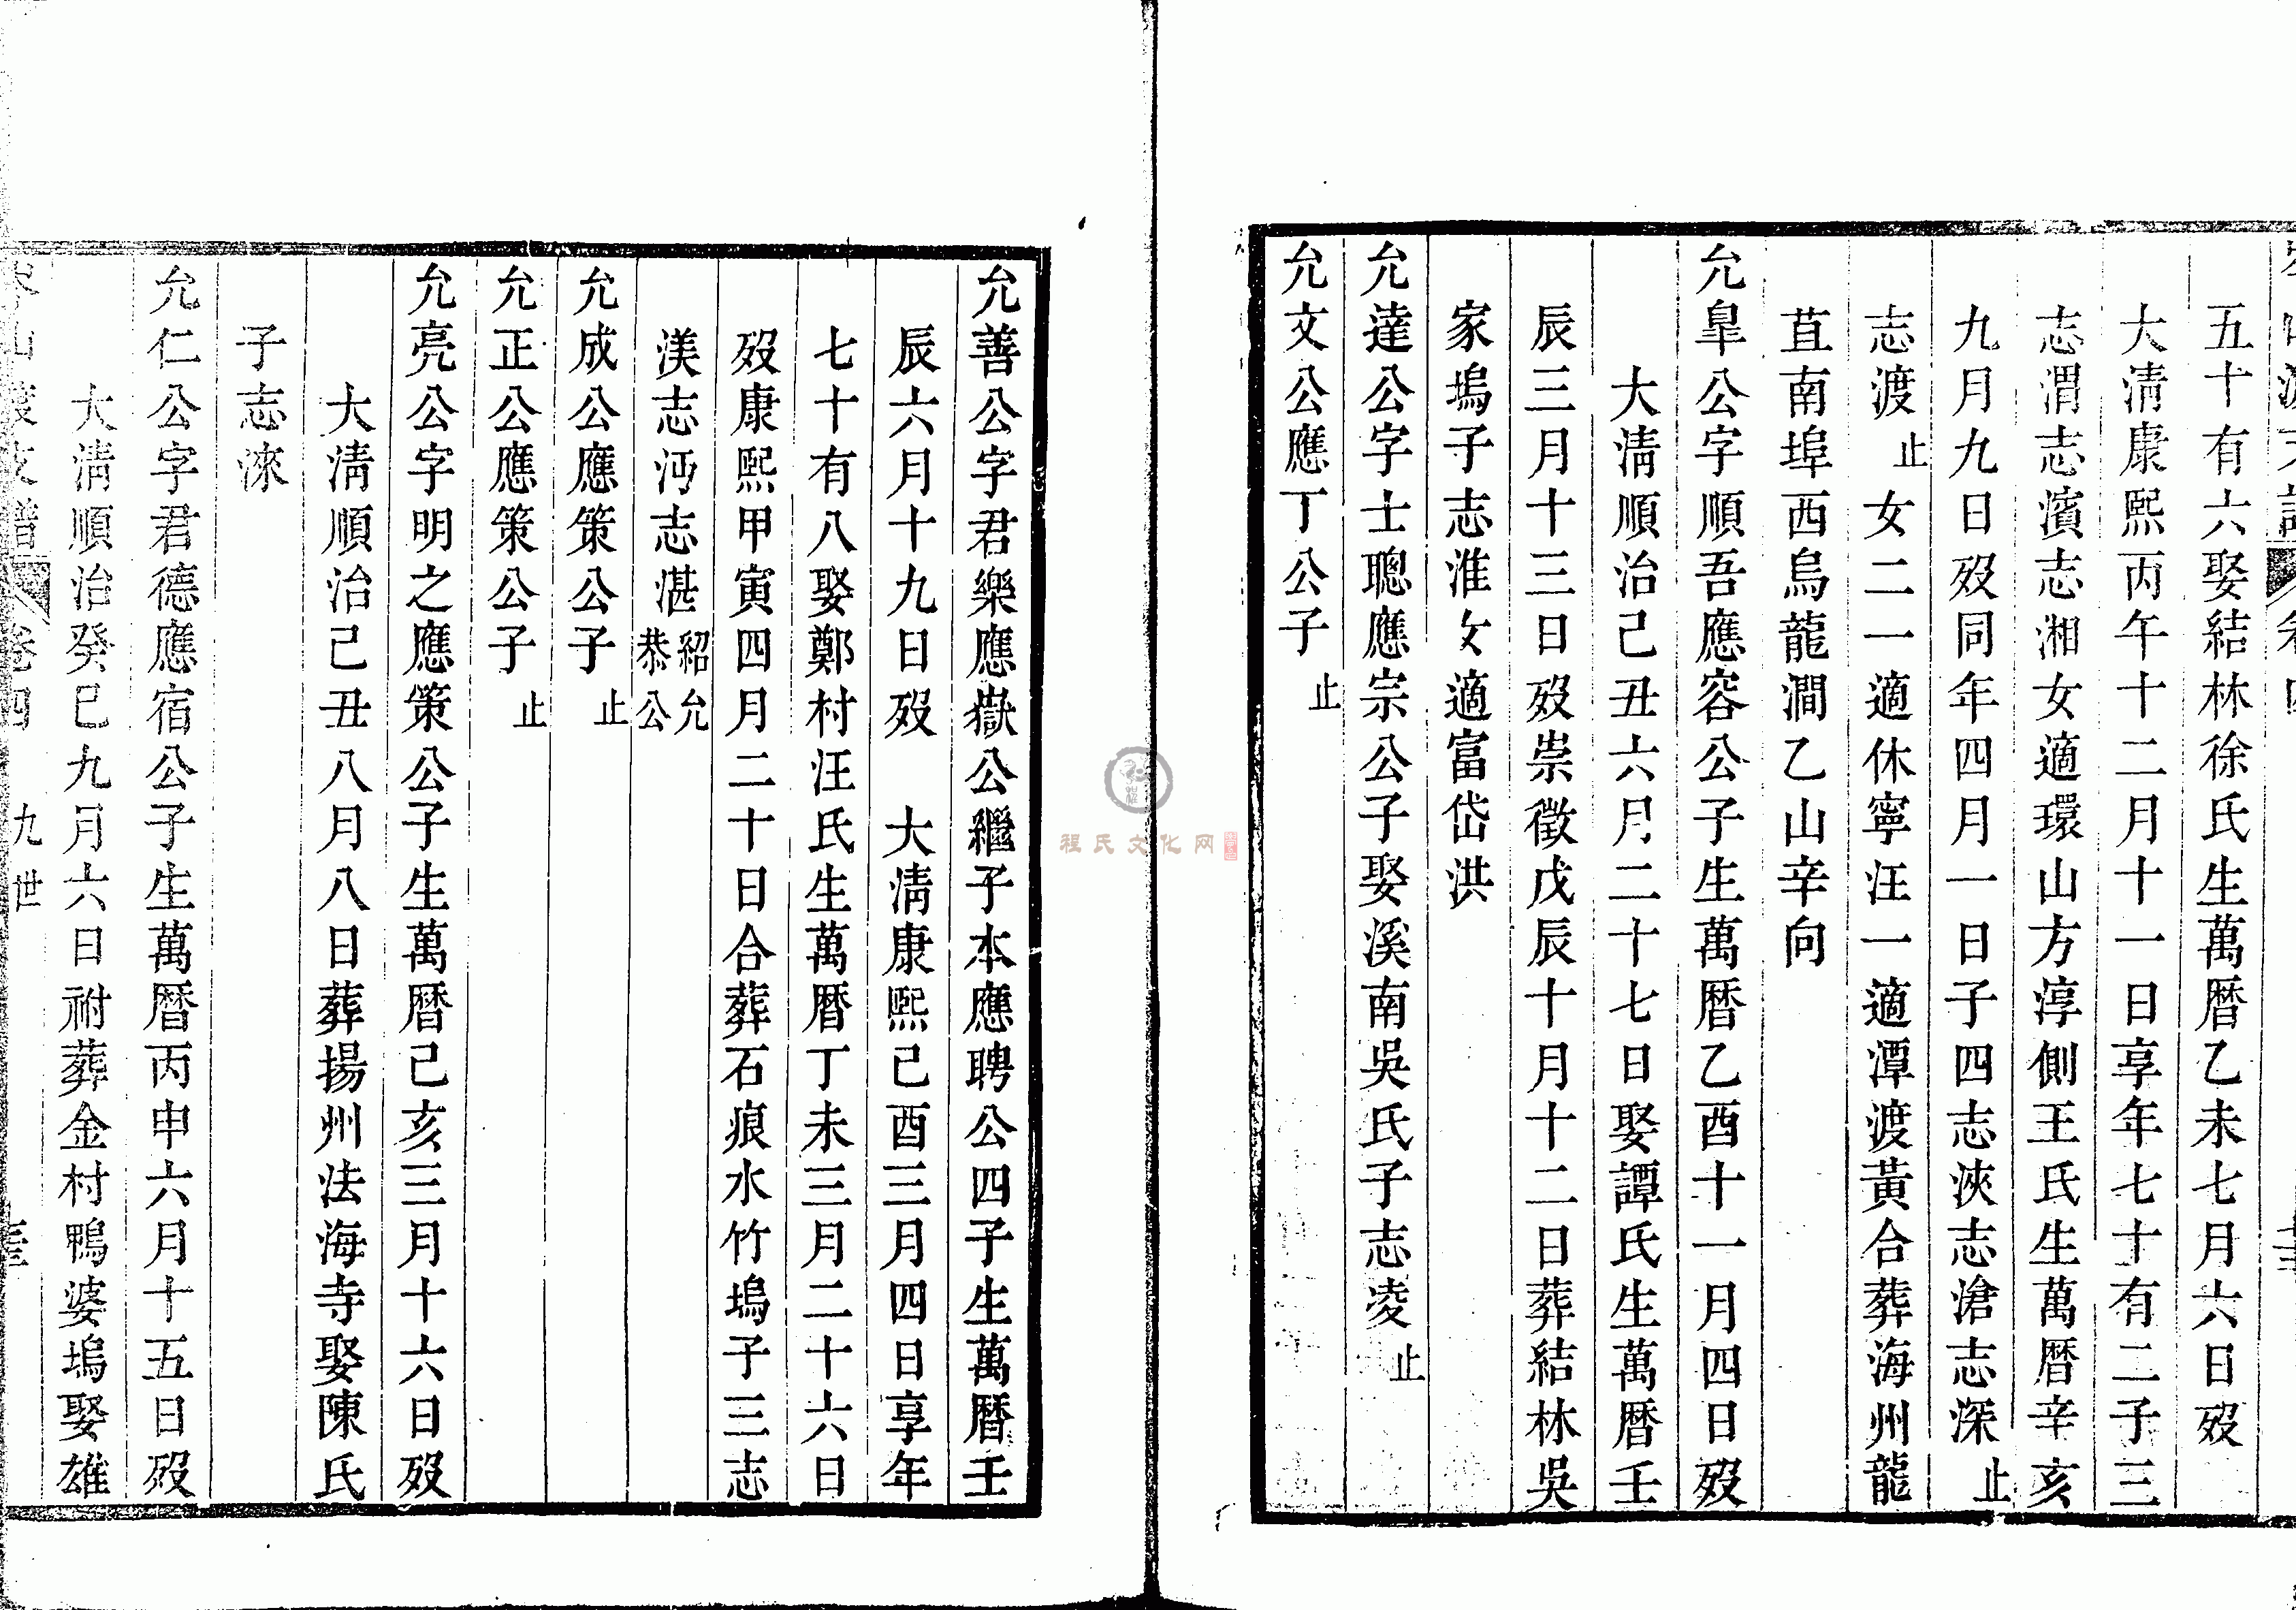 五十有六娶結林徐氏生萬曆乙未七月六日歿
大清康熙丙午十二月十一日享年七十有二子三
志渭志濱志湘女適環山方淳側王氏生萬曆辛亥
九月九日歿同年四月一日子四志浹志滄志深止
志渡止女二一適休寧汪一適潭渡黃合葬海州龍
苴南埠西烏龍澗乙山辛向
允臯公字順吾應容公子生萬曆乙酉十一月四日歿
大清順治己丑六月二十七日娶譚氏生萬曆壬
辰三月十三日歿崇徵戊辰十月十二日葬結林吳
家塢子志淮女適富岱洪
允達公字士聰應宗公子娶溪南吳氏子志淩止
允文公應丁公子止
允善公字君樂應嶽公繼子本應聘公四子生萬曆壬
辰六月十九日歿 大清康熙己酉三月四日享年
七十有八娶鄭村汪氏生萬曆丁未三月二十六日
歿康熙甲寅四月二十日合葬石痕水竹塢子三志
渼志沔志湛紹允恭公
允成公應策公子止
允正公應策公子止
允亮公字明之應策公子生萬曆己亥三月十六日歿
大清順治己丑八月八日葬揚州法海寺娶陳氏
子志淶
允仁公字君德應宿公子生萬曆丙申六月十五日歿
大清順治癸巳九月六日祔葬金村鴨婆塢娶雄
山渡支譜 卷四 九世
程氏文化网